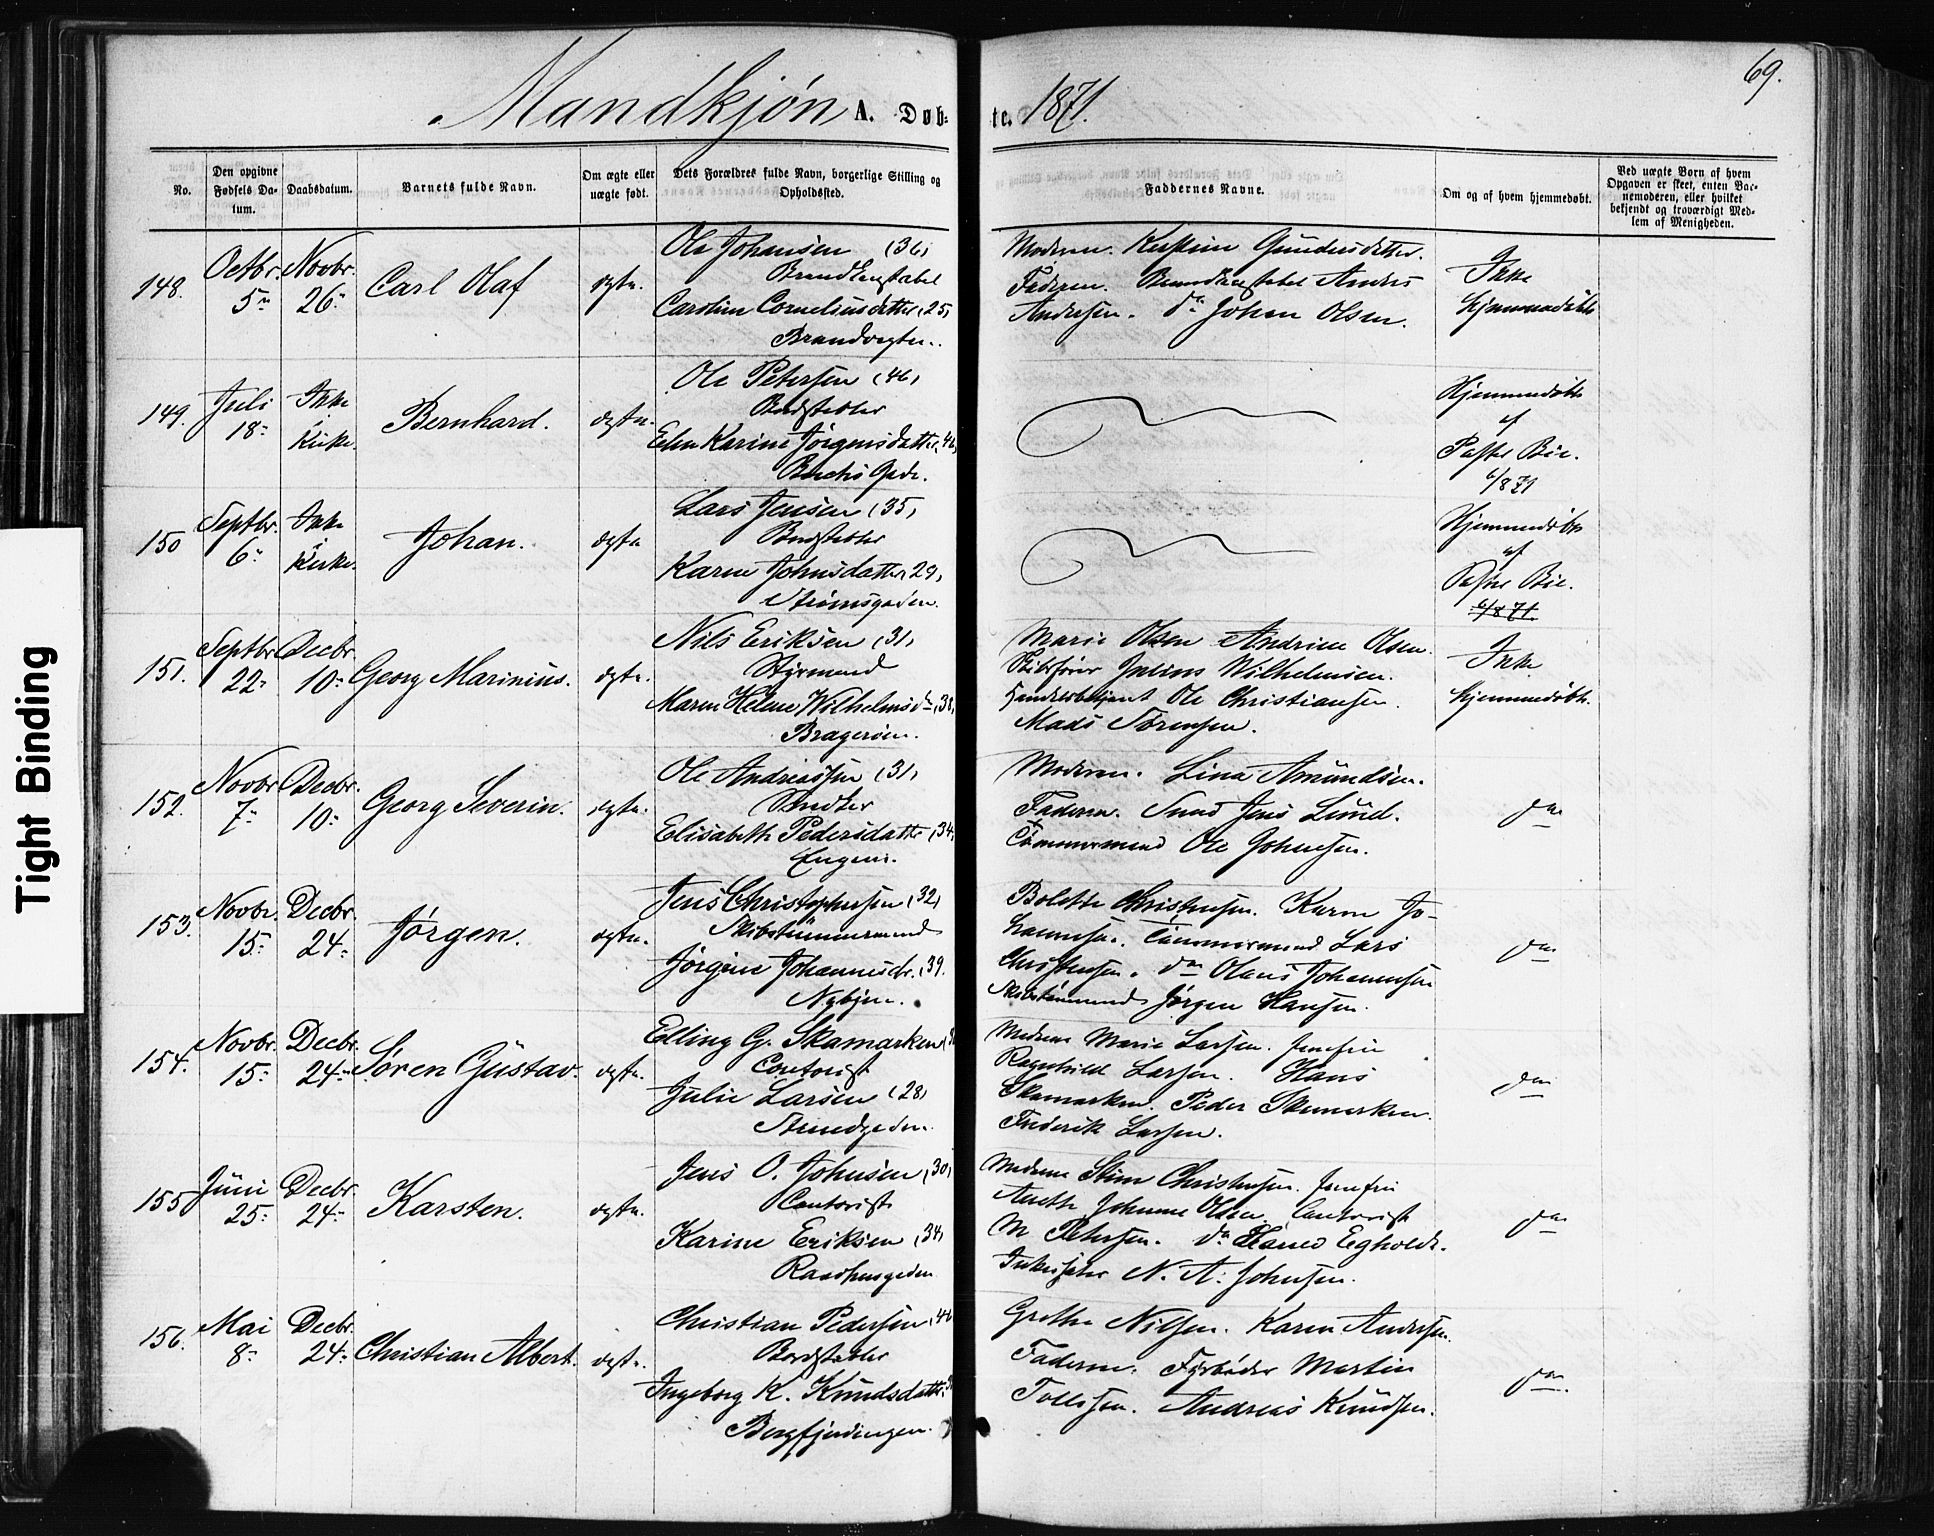 69.
Mandkjøn A. Døb-
te. 1871.
No.
Den opgivne Fødsels Da-
tum.
Daabsdatum.
Barnets fulde Navn.
Om ægte eller
uægte født.
Dets Forældres fulde Navn, borgerlige Stilling og
Opholdssted.
Faddernes Navne.
Om og af hvem hjemmedøbt.
Ved uægte Børn af hvem
Opgaven er skeet, enten Bar-
nemoderen, eller hvilket
bekjendt og troværdigt Med-
lem af Menigheden.
148. Octbr. 5 Novbr. 26 Carl Olaf ægte.
Ole Johansen (36)
Brandkonstabel
Caroline Corneliusdatter (25)
Brandvagten.
Moderen. Kirstine Gundersdatter.
Faderen. Brandkonstabel Anders
Andersen. do Johan Olsen.
Ikke
hjemmedøbt
149. Juli 18 Ikke i Kirke. Bernhard. ægte.
Ole Petersen (46)
Bordstabler
Karine Jørgensdatter (46)
Buchs Gade.
Hjemmedøbt
af
Pastor Bie.
6/8 71
150 Septbr. 6 Ikke i Kirke. Johan. ægte
Lars Jensen (35)
Bordstabler
Karen Johnsdatter (29)
Strømsgaden.
Hjemmedøbt
af
Pastor Bie.
6/8 71.
151. Septbr. 22 Decbr. 10 Georg Marinius. ægte.
Nils Eriksen (31)
Styrmand
Maren Helene Wilhelmsd. (38)
Bragerøen.
Marie Olsen Andrine Olsen.
Skibsfører Julius Wilhelmsen.
Handelsbetjent Ole Christiansen.
Mads Sørensen.
Ikke
hjemmedøbt.
152. Novbr 7 Decbr. 10 Georg Severin. ægte.
Ole Andreassen (31)
Snedker
Elisabeth Pedersdatter (34)
Engene.
Moderen. Lina Amundsen.
Faderen. Smed Jens Lund.
Tømmermand Ole Johnsen.
do
153. Novbr. 15 Decbr. 24 Jørgen. ægte.
Jens Christophersen (32)
Skibstømmermand
Jørgine Johannesdr. (39.
Nybyen.
Bolette Christensen. Karen Jo-
hannesen. Tømmermand Lars
Christensen. do Olaus Johannesen
Skibstømmermand Jørgen Hansen.
do
154. Novbr. 15 Decbr. 24 Søren Gustav. ægte.
Elling G. Skamarken
Contorist
Julie Larsen (28)
Strandgaden.
Madame Marie Larsen. Jomfru
Ragnhild Larsen. Hans
Skamarken. Peder Skamarken.
Frederik Larsen.
do
155 Juni 25 Decbr. 24 Karsten. ægte.
Jens O. Johnsen (30)
Contorist
Karine Eriksen (34)
Raadhusgaden
Madame Stine Christensen. Jomfru
Anette Johanne Olsen. Contorist
M Petersen. do Egholdt.
N. A. Johnsen.
do
156. Mai 8 Decbr. 24 Christian Albert. ægte.
Christian Pedersen (40
Bordstabler
Ingeborg K. Knudsdatter
Bergfjerdingen.
Grethe Nilsen. Karen Andersen.
Faderen. Fyrbøder Martin
Tollefsen. Andreas Knudsen.
do
Tight Binding